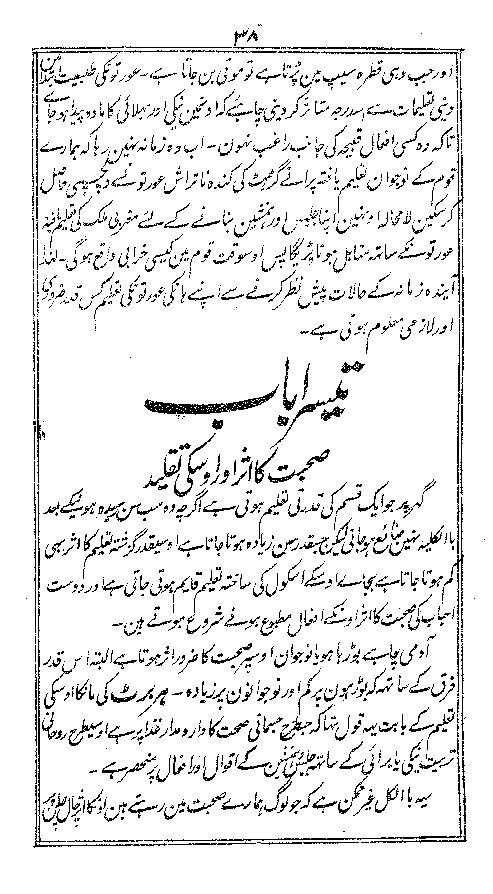 ۳۸
اور جب وہی قطرہ سیپ مین پڑتا ہے تو موتی بن جاتا ہے۔ عورتونکی طبیعت ابتدا مین
دینی تعلیمات سے اسدرجہ متاثر کر دینی چاہئے کہ اونمین نیکی اور بھلائی کا مادہ پیدا ہو جاے
تاکہ وہ کسی افعال قبیحہ کی جانب راغب نہون۔ اب وہ زمانہ نہین رہا کہ ہمارے
قوم کے نوجوان تعلیم یافتہ پرانے گرھٹ کی کندہ ناتراش عورتون سے دلچسپی حاصل
کر سکین لا محالہ اونہین اپنا جلیس اور ہمنشین بنانے کے لئے مغربی ملک کی تعلیم یافتہ
عورتونکے ساتھ متاہل ہونا پڑیگا پس اوسوقت قوم مین کیسی خرابی واقع ہوگی۔ لہذا
آیندہ زمانہ کے حالات پیش نظر کرنے سے اپنے ہانکی عورتونکی تعلیم کس قدر ضروری
اور لازمی معلوم ہوتی ہے۔
تیسرا باب
صحبت کا اثر اور اوسکی تقلید
گہر پر جو ایک قسم کی قدرتی تعلیم ہوتی ہے اگرچہ وہ سب سن رسیدہ ہونیکے بعد
باالکلیہ نہین ضائع ہو جاتی لیکن جسقدر سن زیادہ ہوتا جاتا ہے اوسیقدر گزشتہ تعلیم کا اثر بہی
کم ہوتا جاتا ہے بجاے اوسکے اسکول کی ساختہ تعلیم قایم ہوتی جاتی ہے اور دوست
احباب کی صحبت کا اثر اونکے افعال مطبوع ہونے شروع ہوتے ہین۔
آدمی چاہے بوڑہا ہو یا نوجوان اوسپر صحبت کا ضرور اثر ہوتا ہے البتہ اس قدر
فرق کے ساتہہ کہ بوڑہون پر کم اور نوجوانون پر زیادہ۔ ہربرٹ کی مانکا اوسکی
تعلیم کے بابت یہہ قول تہا کہ جسطرح جسمانی صحت کا دارومدار غذا پر ہے اوسیطرح روحانی
تربیت نیکی یا برائی کے ساتہہ جلیس و ہمنشین کے اقوال اور اعمال پر منحصر ہے۔
یہہ باالکل غیر ممکن ہے کہ جو لوگ ہمارے صحبت مین رہتے ہین اونکا اثر چال چلن پر